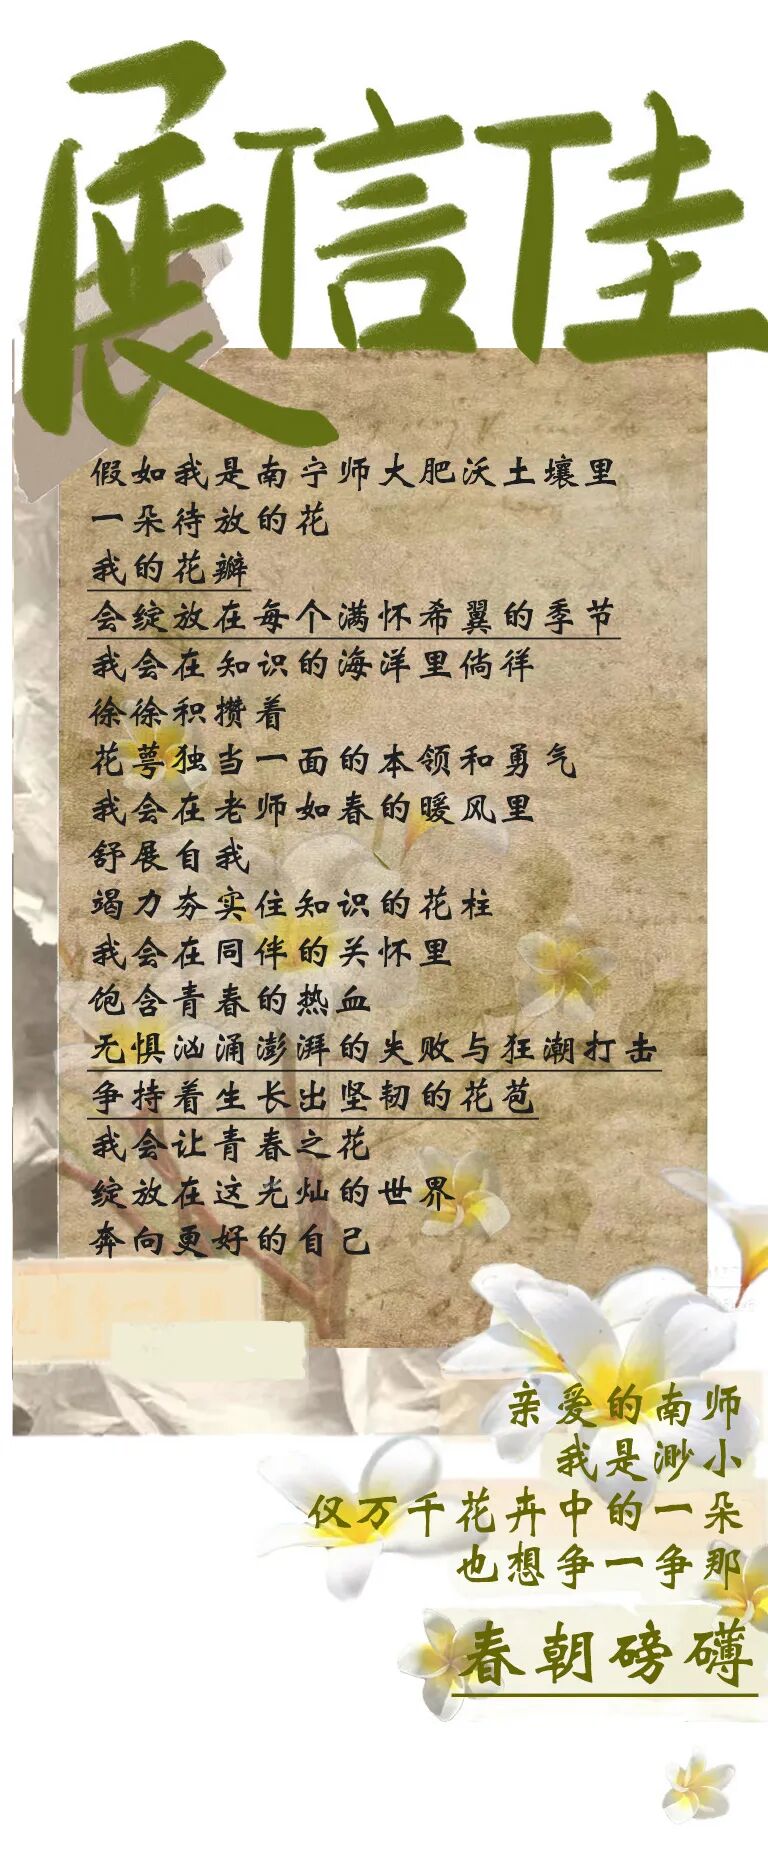 展信佳
假如我是南宁师大肥沃土壤里
一朵待放的花
我的花瓣
会绽放在每个满怀希翼的季节
我会在知识的海洋里倘徉
徐徐积攒着
花萼独当一面的本领和勇气
我会在老师如春的暖风里
舒展自我
竭力夯实住知识的花柱
我会在同伴的关怀里
饱含青春的热血
无惧汹涌澎湃的失败与狂潮打击
争持着生长出坚韧的花苞
我会让青春之花
绽放在这光灿的世界
奔向更好的自己
亲爱的南师
我是渺小
仅万千花卉中的一朵
也想争一争那
春朝磅礴